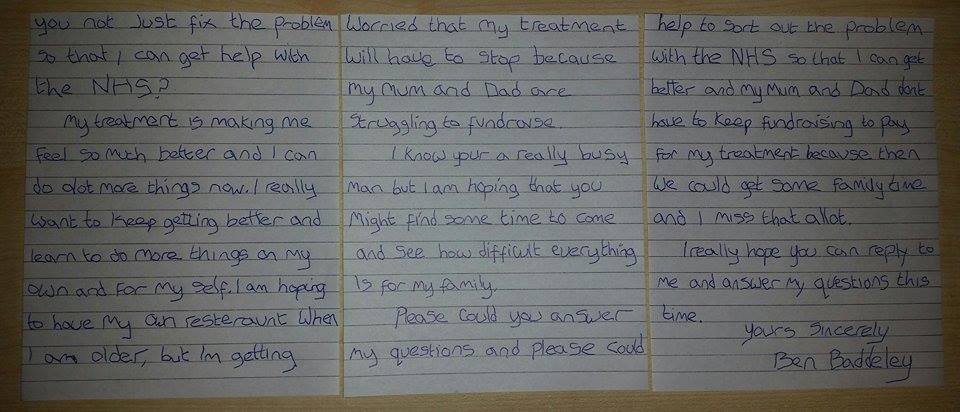 you not Just fix the problem
so that I can get help with
the NHS?
My treatment is making me
feel so much better and I can
do alot more things now. I really
want to keep getting better and
learn to do more things on my
own and for my self. I am hoping
to have my own resteraunt when
I am older, but I'm getting
Worried that my treatment
will have to stop because
my mum and Dad are
struggling to fundraise.
I know your a really busy
man but I am hoping that you
Might find some time to come
and see how difficult everything
Is for my family.
Please could you answer
my questions and please could
help to sort out the problem
with the NHS so that I can get
better and my Mum and Dad dont
have to keep fundraising to pay
for my treatment because then
we could get some family time
and I miss that allot.
I really hope you can reply to
me and answer my questions this
time.
Yours Sincerely
Ben Baddeley